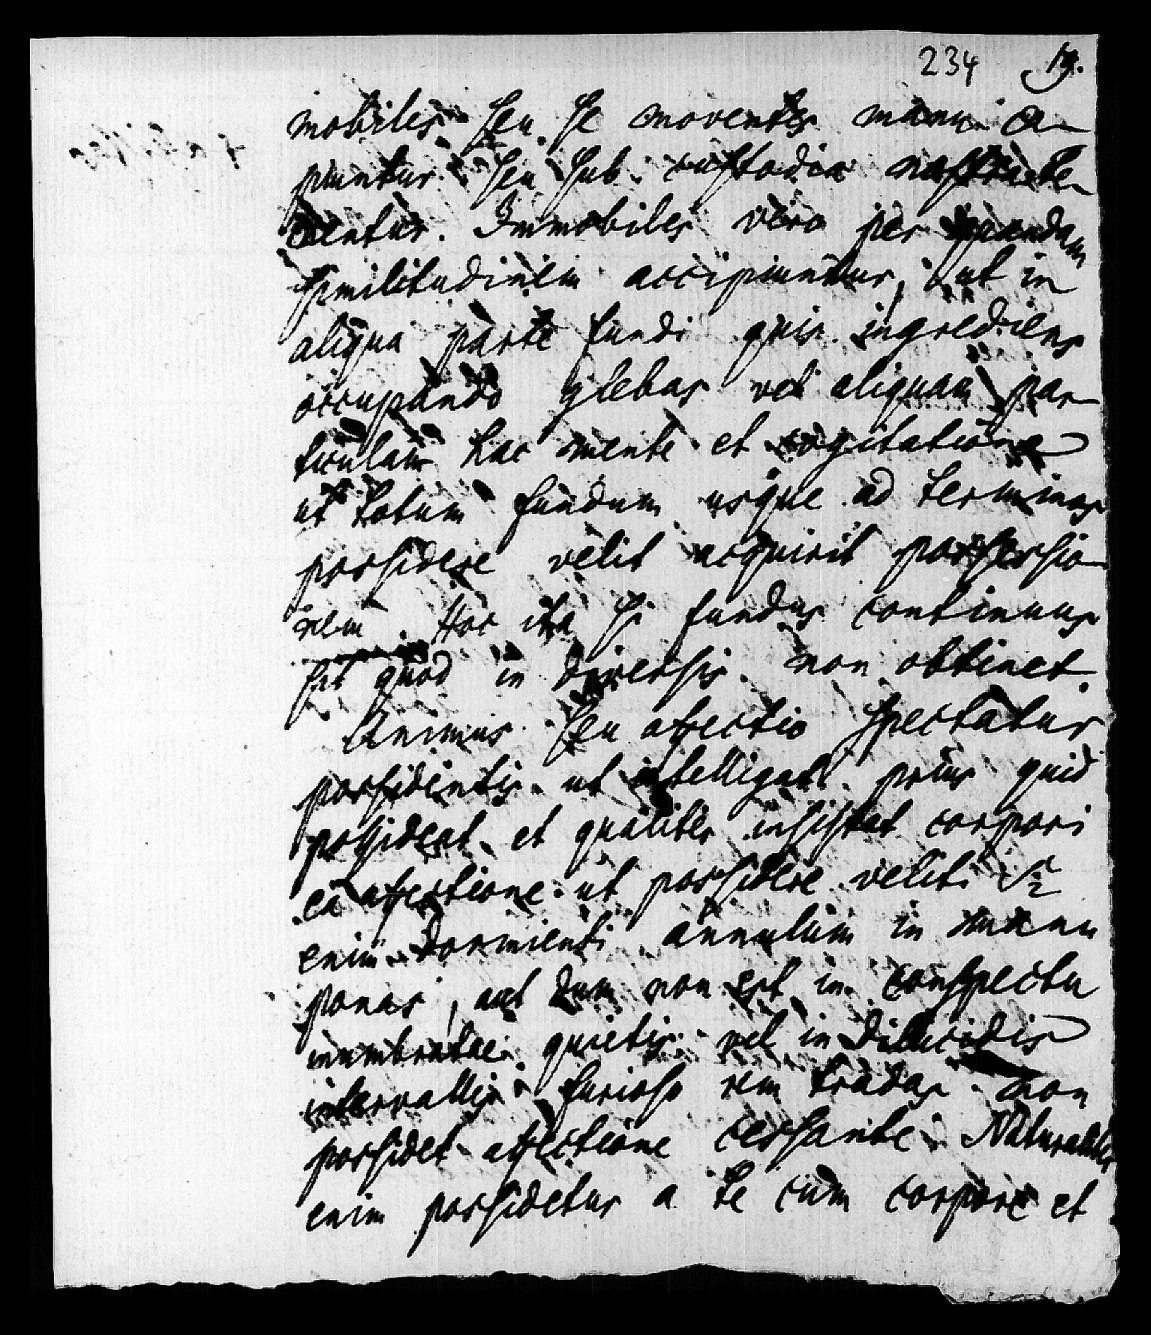 234 19.
mobiles seu se moventes manu ca-
piuntur seu sub custodia nostra te-
nentur. Immobiles vero per quandam
similitudinem accipiuntur, ut in
aliqua parte fundi quis ingrediens
occupando glebas vel aliquam par-
ticulam hac mente et cogitatione
ut totum fundum usque ad terminos
possidere velit acquirit possessio-
nem. Hoc ita si fundus continuus
sit quod in diversis non obtinet.
Animus seu affectio spectatur
possidentis ut intelligat prius quid
possideat et qualiter insistat corpori
ea affectione ut possidere velit. Si
enim dormienti annulum in manu
ponas, aut dum non est in conspectu
inumbratae quietis vel in dilucidis
intervallis furioso rem tradas non
possidet affectione cessante. Naturaliter
enim possidetur a te cum corpore et